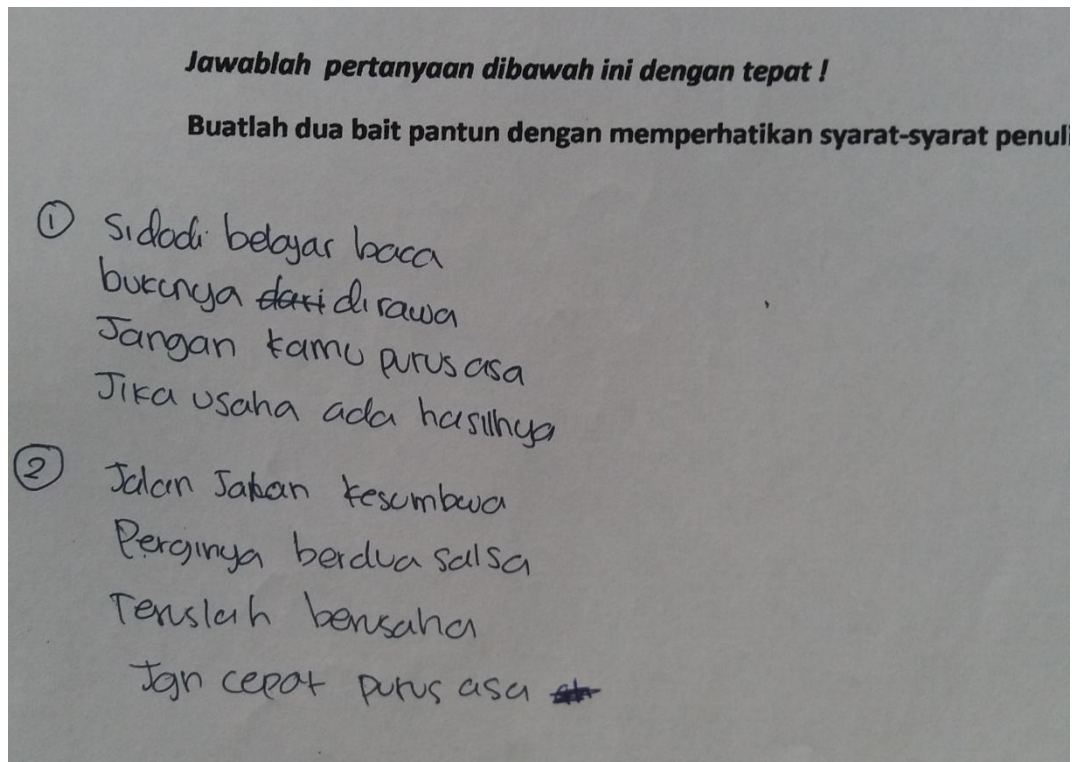 Jawablah pertanyaan dibawah ini dengan tepat !
Buatlah dua bait pantun dengan memperhatikan syarat-syarat penuli
① Sidodi belajar baca
bukunya dari di rawa
Jangan kamu putus asa
Jika usaha ada hasilnya
② Jalan Jalan kesumbwa
Perginya berdua salsa
Teruslah berusaha
Jgn cepat putus asa